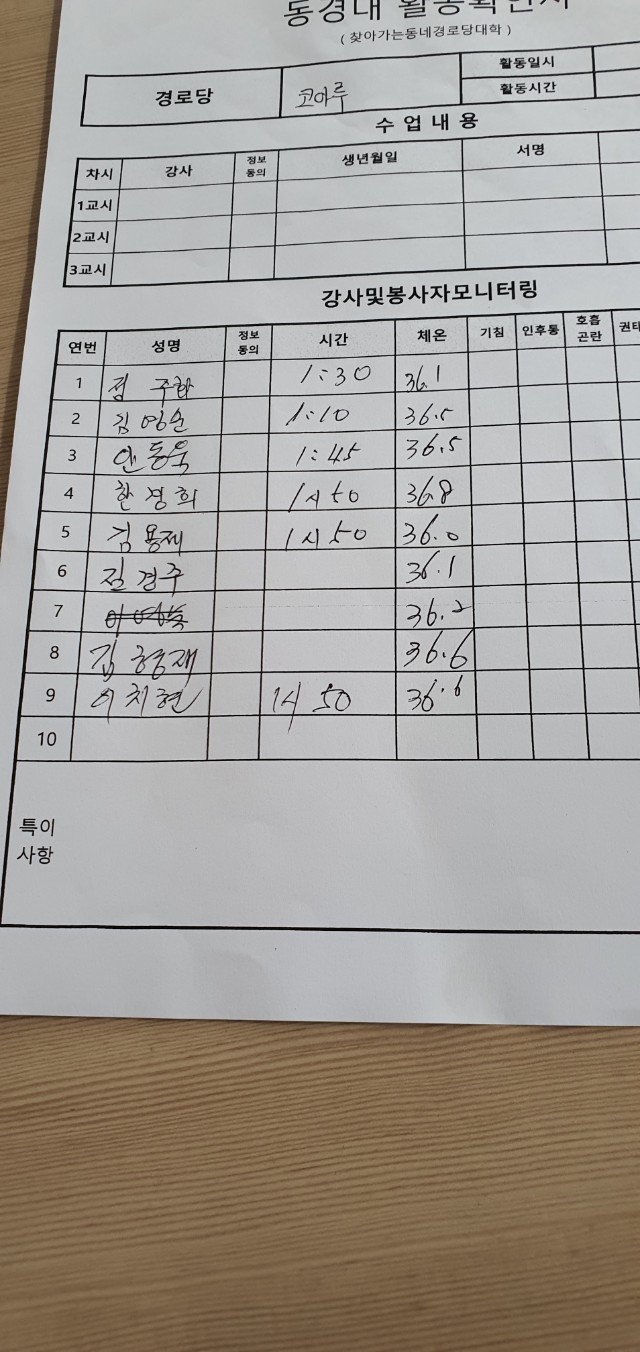 동경대 활동확인서
( 찾아가는동네경로당대학 )
경로당 코아루 활동일시
활동시간
수 업 내 용
차시 강사 정보동의 생년월일 서명
1교시
2교시
3교시
강사및봉사자모니터링
연번 성명 정보동의 시간 체온 기침 인후통 호흡곤란 권태
1 정 주합 1:30 36.1
2 김영순 1:10 36.5
3 안동욱 1:45 36.5
4 한경희 1시50 36.8
5 김용제 1시50 36.0
6 진경주 36.1
7 36.2
8 김형재 36.6
9 이치현 1시50 36.6
10
특이
사항